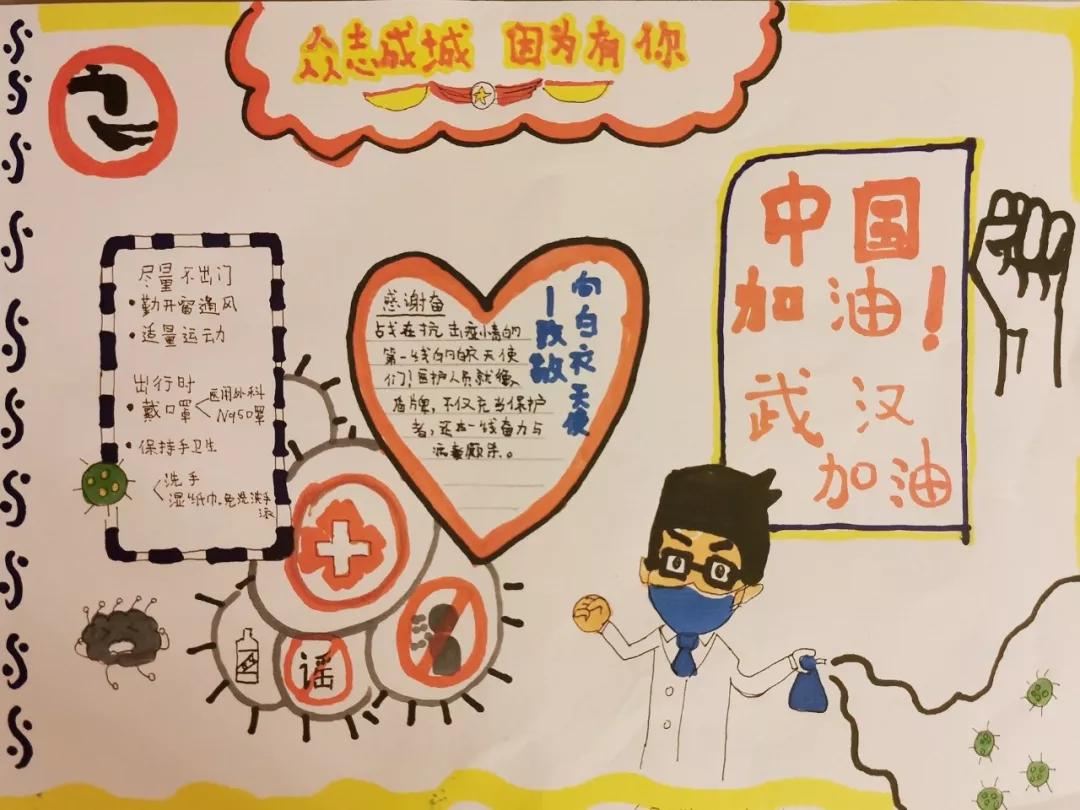 众志成城 因为有你
尽量不出门
•勤开窗通风
•适量运动
出行时
•戴口罩
医用外科
N95口罩
•保持手卫生
洗手
湿纸巾、免洗洗手
液
感谢奋
战在抗击疫情的
第一线的白衣天使
们!医护人员就像
盾牌,不仅充当保护
者,还在一线奋力与
病毒厮杀。
向白衣天使
—致敬
中国
加油!
武汉
加油
谣